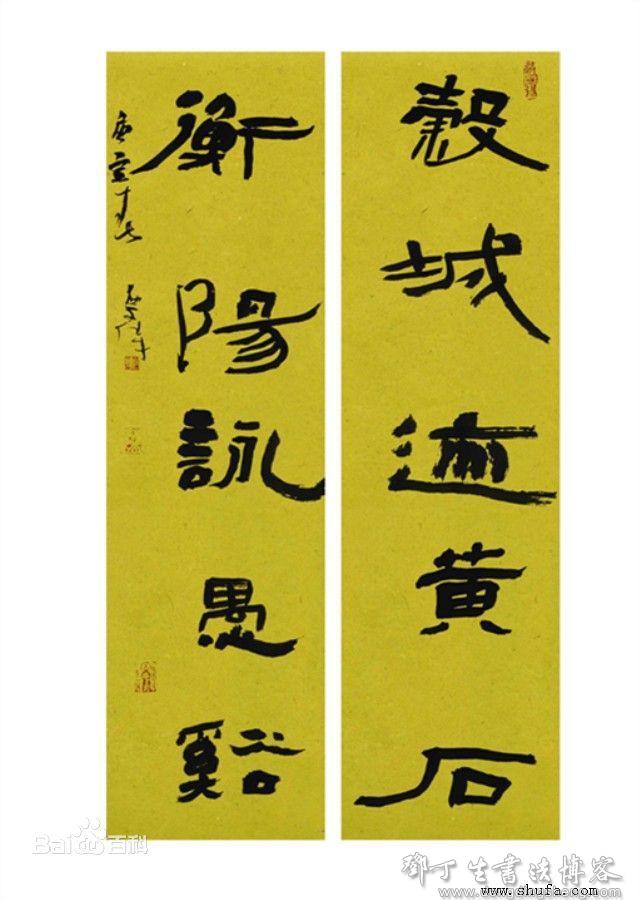 穀城迹黄石
衡陽詠愚谿
庚寅
Bai百科
鄧丁生書法博客
www.shufa.com